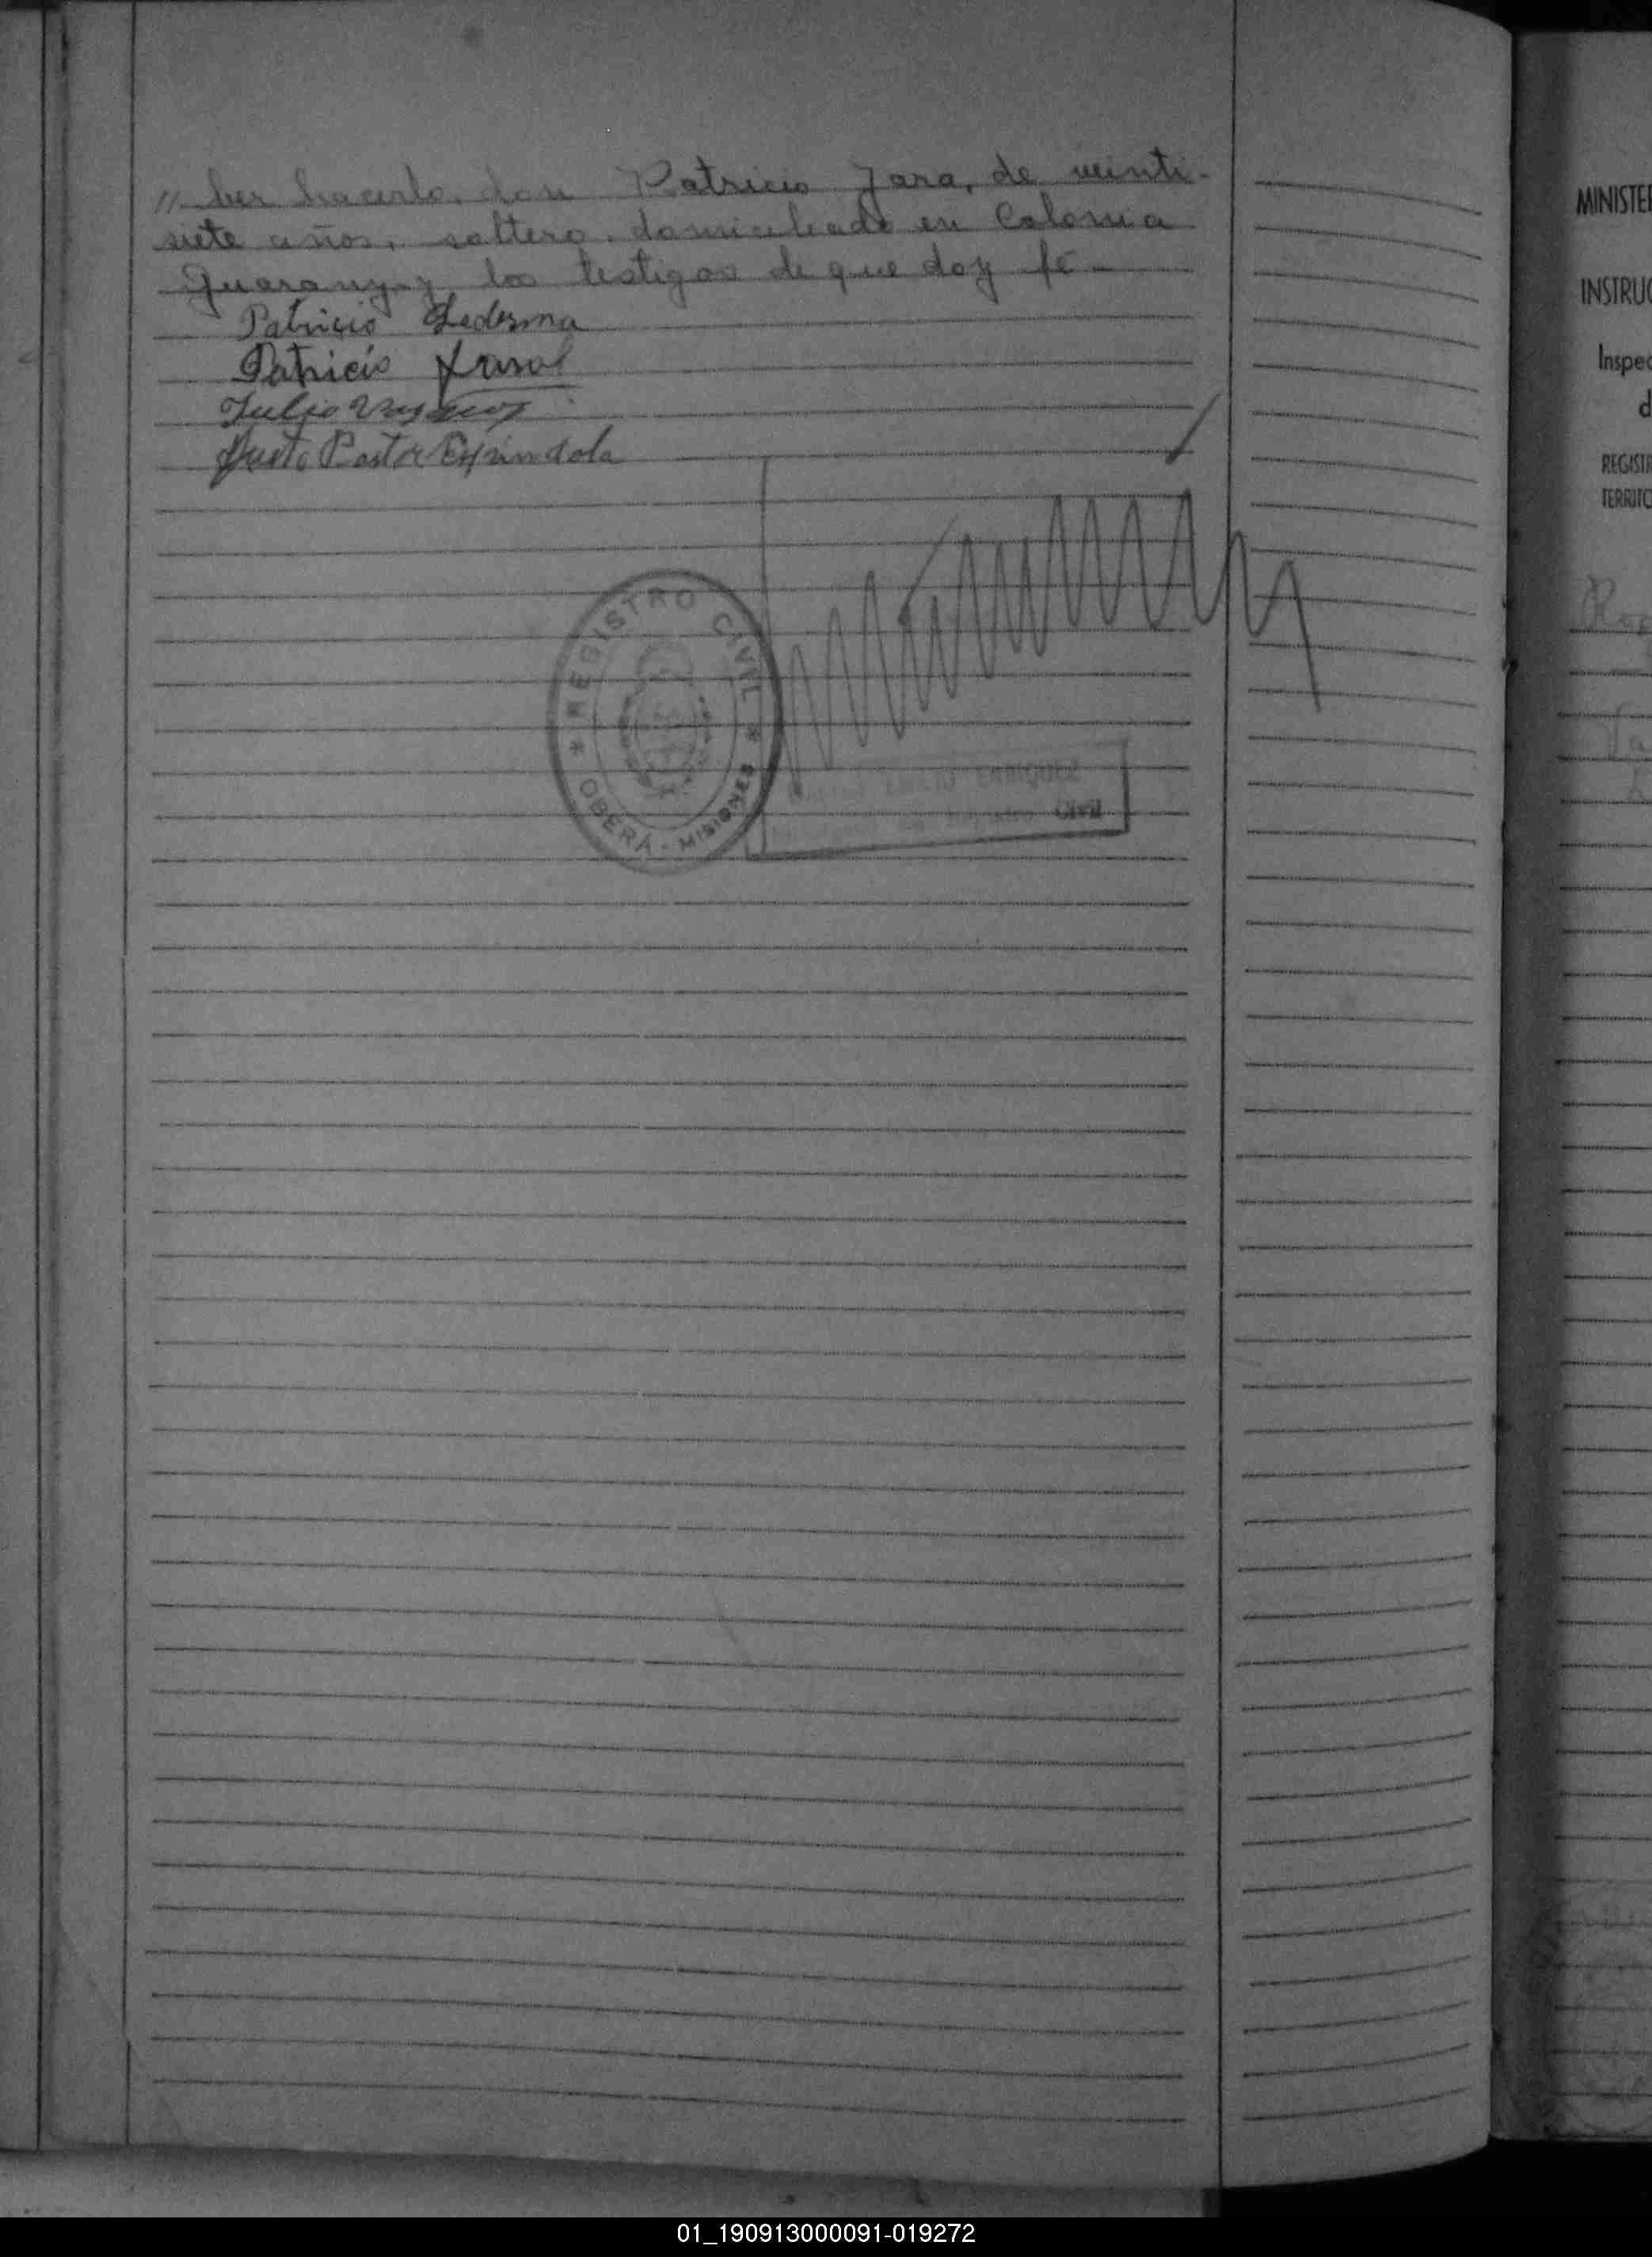 // ber hacerlo, don Patricio Jara, de veinti-
siete años, soltero, domiciliado en Colonia
Guarany, y los testigos de que doy fé -
Patricio Ledesma
Patricio
Julio
Justo Pastor Espindola
* REGISTRO CIVIL *
OBERÁ - MISIONES
ENRIQUEZ
Civil
MINISTE
INSTRUC
Inspec
d
REGISTR
TERRITO
01_190913000091-019272